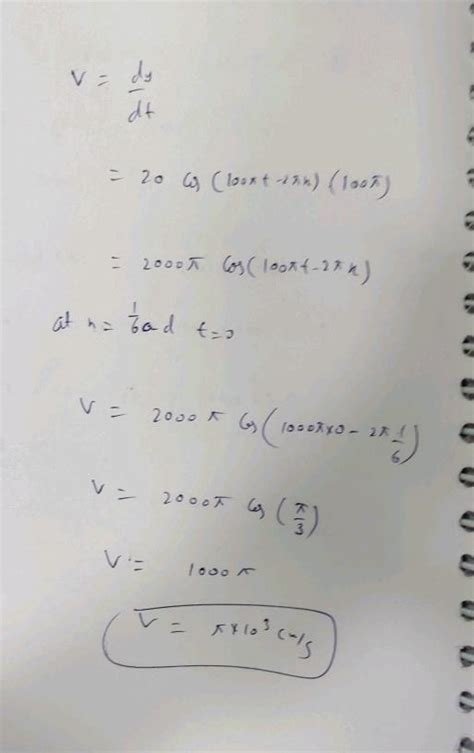 V = dy/dt
= 20 cos (100πt - 2πx) (100π)
= 2000π cos(100πt - 2πx)
at x = 1/6 and t=0
V = 2000π cos(1000π×0 - 2π 1/6)
V = 2000π cos(π/3)
V = 1000π
V = π×10³ cm/s